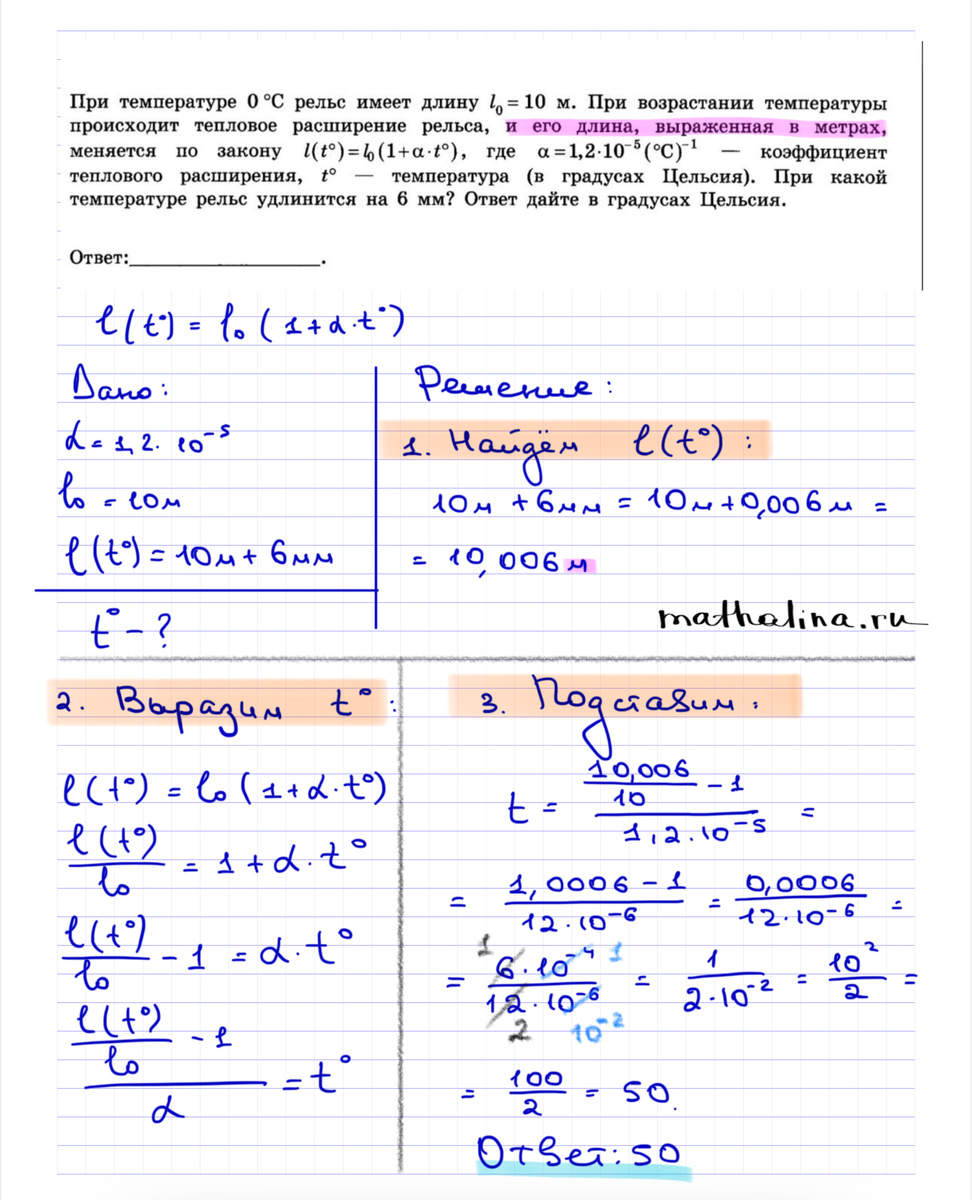 При температуре 0 °C рельс имеет длину l₀ = 10 м. При возрастании температуры
происходит тепловое расширение рельса, и его длина, выраженная в метрах,
меняется по закону l(t°)=l₀(1+α·t°), где α=1,2·10⁻⁵(°C)⁻¹ — коэффициент
теплового расширения, t° — температура (в градусах Цельсия). При какой
температуре рельс удлинится на 6 мм? Ответ дайте в градусах Цельсия.
Ответ:____________________.
l(t°) = l₀ (1+α·t°)
Дано:
α = 1,2 · 10⁻⁵
l₀ = 10м
l(t°) = 10м + 6мм
t° - ?
Решение:
1. Найдём l(t°) :
10м + 6мм = 10м+0,006м =
= 10,006м
mathalina.ru
2. Выразим t° :
l(t°) = l₀ (1+α·t°)
l(t°)/l₀ = 1+α·t°
l(t°)/l₀ - 1 = α·t°
(l(t°)/l₀ - 1)/α = t°
3. Подставим :
t = (10,006/10 - 1)/(1,2·10⁻⁵) =
= (1,0006 - 1)/(12·10⁻⁶) = 0,0006/(12·10⁻⁶) =
1 1
= (6·10⁻⁴)/(12·10⁻⁶) = 1/(2·10⁻²) = 10²/2 =
2 10⁻²
= 100/2 = 50.
Ответ: 50